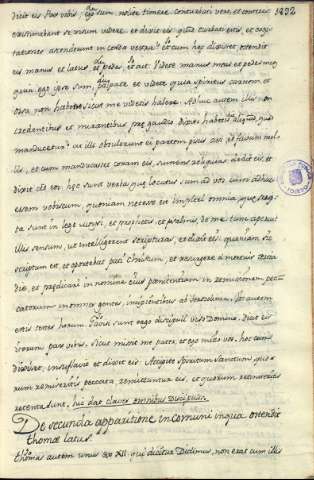 1232
dicit eis Pax vobis, ego sum, nolite timere Conturbati vero et conterriti
existimabant se visum videre et dixit eis quid turbati estis, et cogi-
tationes ascendunt in corda vestra? et cum hoc dixisset ostendit
eis manus et latus et pedes, et ait. Videte manus meas et pedes meos
quia ego ipse sum, palpate et videte quia spiritus carnem, et
ossa non habet sicut me videtis habere. Adhuc autem illis non
credentibus et mirantibus prae gaudio dixit habetis aliquid quod
manducetur? at illi obtulerunt ei partem piscis assi et favum mel-
lis, et cum manducasset coram eis, sumens reliquias dedit eis, et
dixit eis haec sunt verba quae locutus sum ad vos cum adhuc
essem vobiscum, quoniam necesse est impleri omnia quae scrip-
ta sunt in lege moysi, et prophetis, et psalmis, de me tunc aperuit
illis sensum, ut intelligerent scripturas, et dixit eis: quoniam sic
scriptum est, et oportebat pati Christum, et resurgere a mortuis tertia
die, et praedicari in nomine eius poenitentiam in remissionem pec-
catorum in omnes gentes, incipientibus ab Ierosolima. Vos autem
estis testes horum. Gavisi sunt ergo discipuli viso Domino. Dicit eis
iterum pax vobis, sicut misit me pater, et ego mitto vos, hoc cum
dixisset, insuflavit et dixit eis: Accipite spiritum sanctum, quo-
rum remiseritis peccata, remittuntur eis, et quorum retinueritis
retenta sunt, hic dat claves omnibus discipulis.
De secunda apparitione in comuni in qua ostendit
thomae latus.
thomas autem unus ex XII, qui dicitur Didimus, non erat cum illis